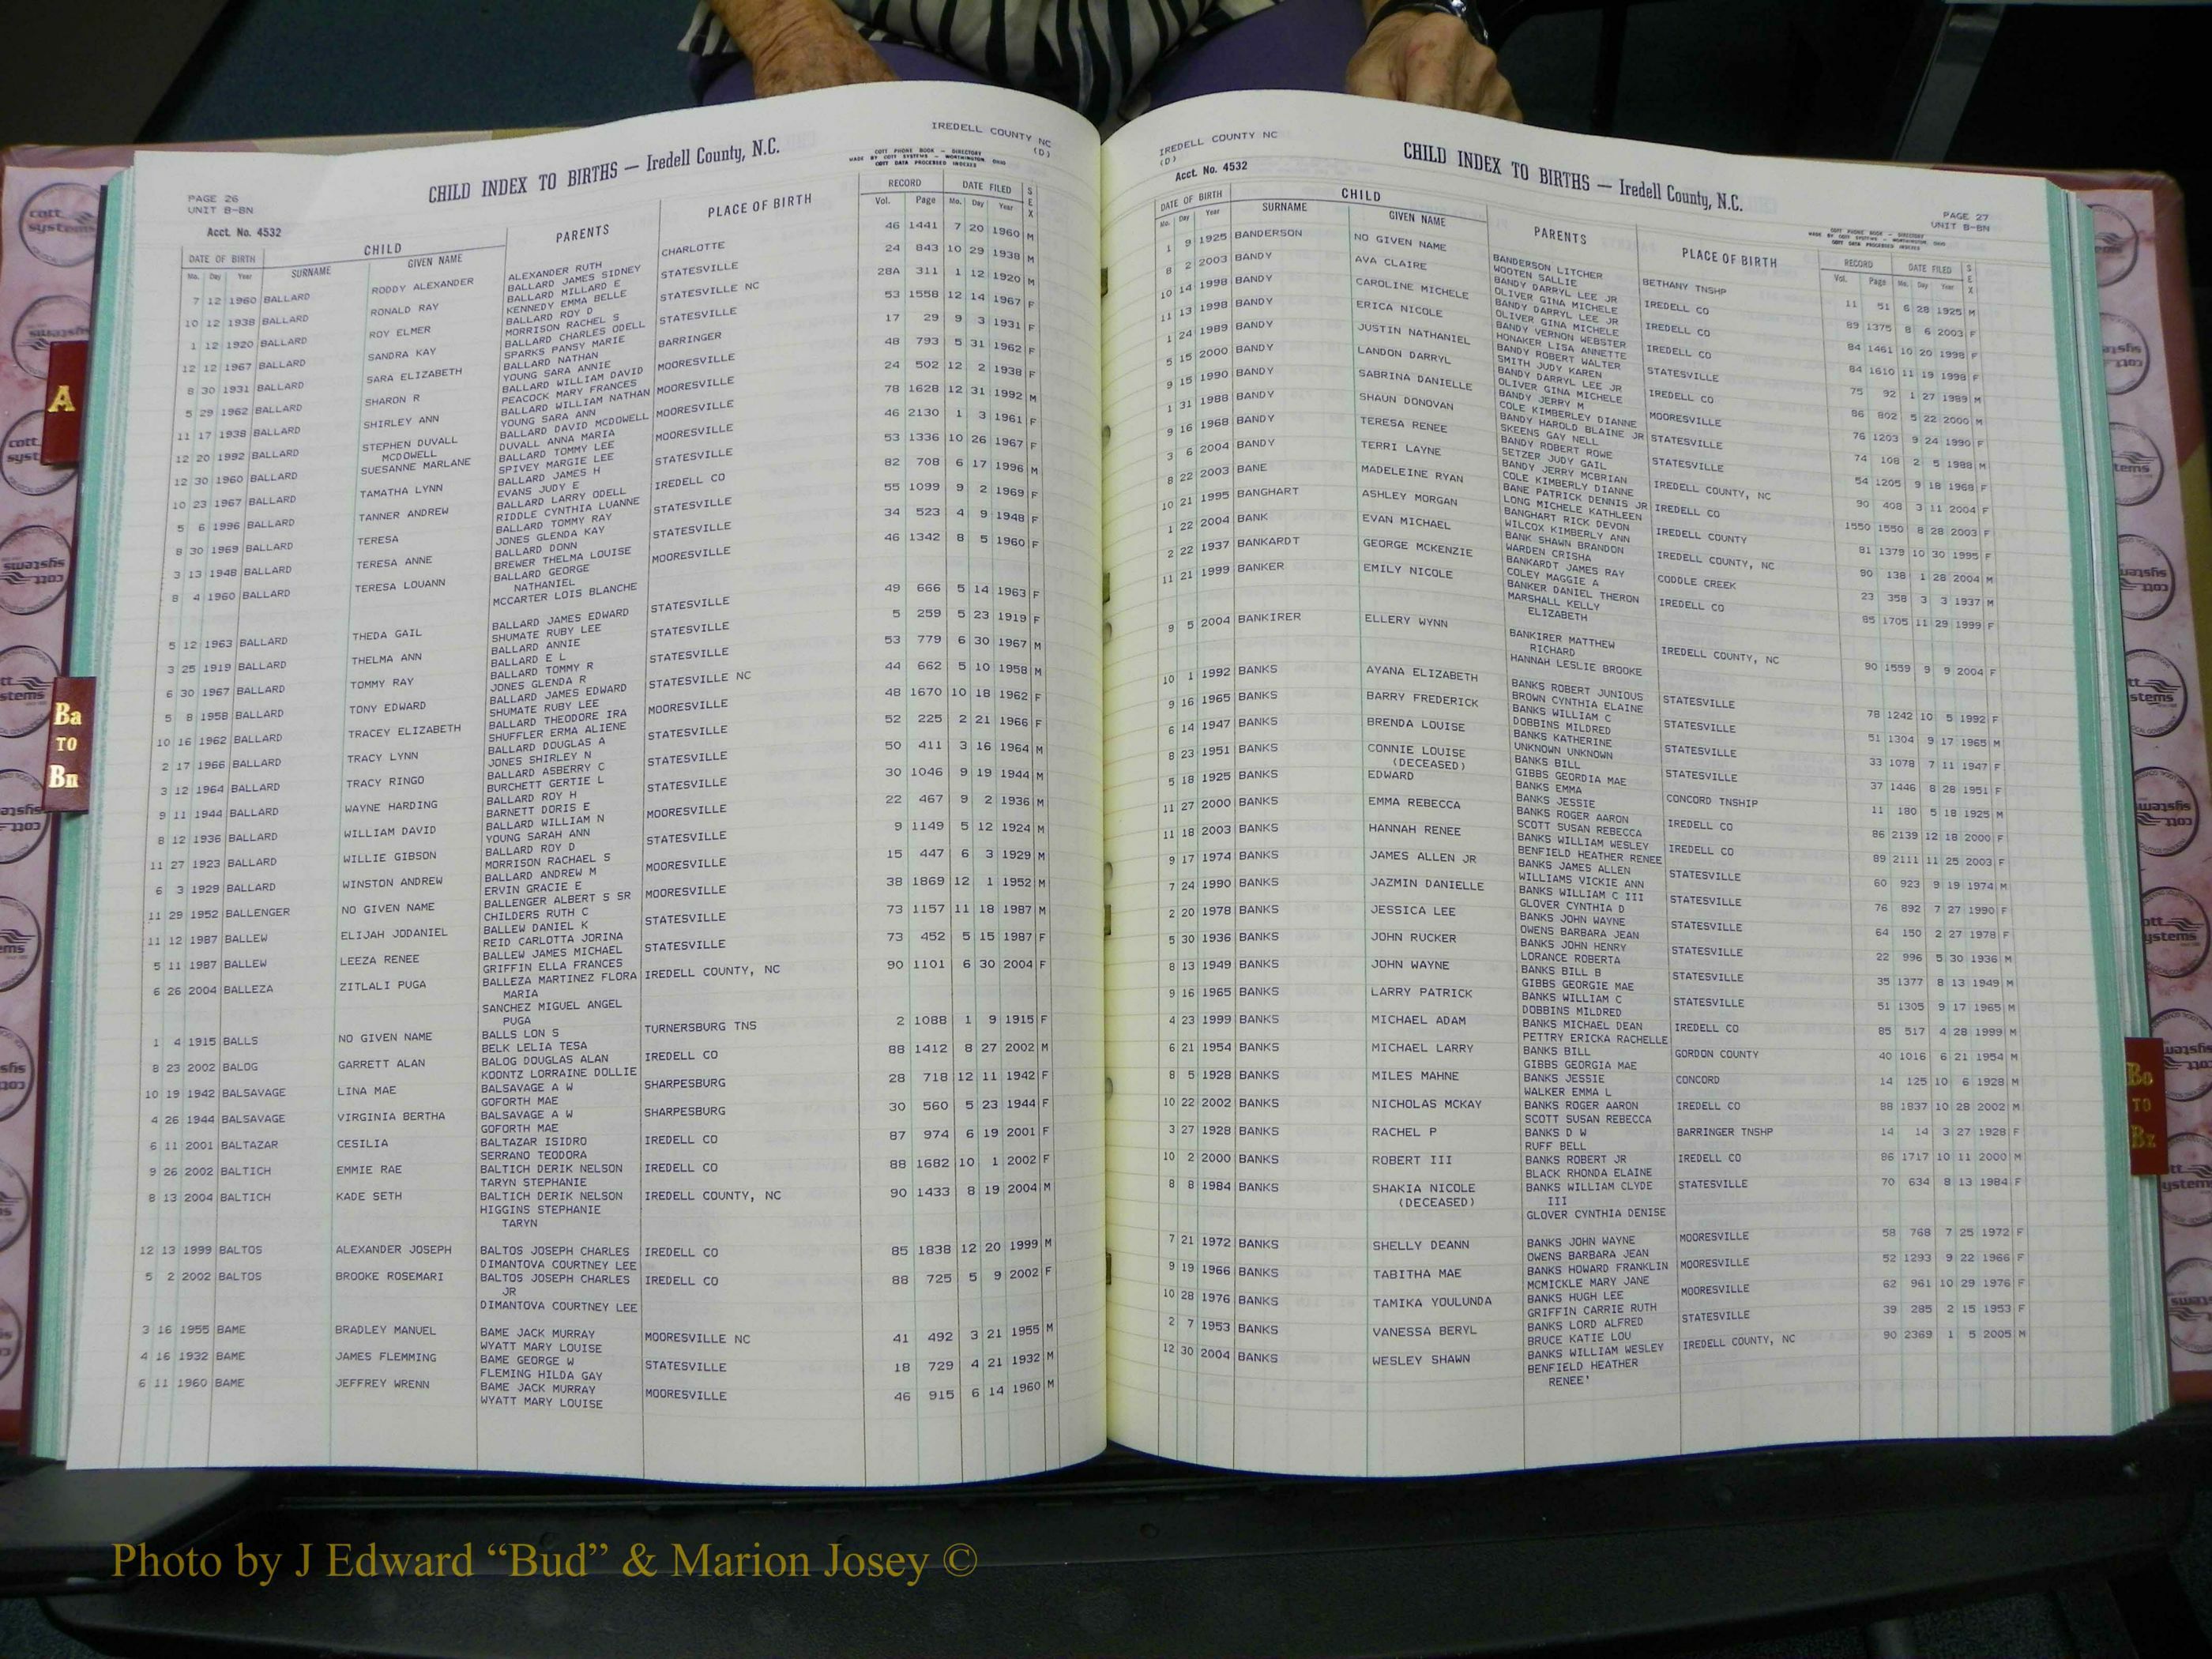 IREDELL COUNTY NC
(D)
CHILD INDEX TO BIRTHS — Iredell County, N.C.
COTT PHONE BOOK — DIRECTORY
MADE BY COTT SYSTEMS — WORTHINGTON, OHIO
COTT DATA PROCESSED INDEXES
PAGE 26
UNIT B-BN
Acct. No. 4532
DATE OF BIRTH CHILD PARENTS PLACE OF BIRTH RECORD DATE FILED SEX
Mo. Day Year SURNAME GIVEN NAME Vol. Page Mo. Day Year
7 12 1960 BALLARD RODDY ALEXANDER ALEXANDER RUTH CHARLOTTE 46 1441 7 20 1960 M
BALLARD JAMES SIDNEY
10 12 1938 BALLARD RONALD RAY BALLARD MILLARD E STATESVILLE 24 843 10 29 1938 M
KENNEDY EMMA BELLE
1 12 1920 BALLARD ROY ELMER BALLARD ROY D STATESVILLE NC 28A 311 1 12 1920 M
MORRISON RACHEL S
12 12 1967 BALLARD SANDRA KAY BALLARD CHARLES ODELL STATESVILLE 53 1558 12 14 1967 F
SPARKS PANSY MARIE
8 30 1931 BALLARD SARA ELIZABETH BALLARD NATHAN BARRINGER 17 29 9 3 1931 F
YOUNG SARA ANNIE
5 29 1962 BALLARD SHARON R BALLARD WILLIAM DAVID MOORESVILLE 48 793 5 31 1962 F
PEACOCK MARY FRANCES
11 17 1938 BALLARD SHIRLEY ANN BALLARD WILLIAM NATHAN MOORESVILLE 24 502 12 2 1938 F
YOUNG SARA ANN
12 20 1992 BALLARD STEPHEN DUVALL BALLARD DAVID MCDOWELL MOORESVILLE 78 1628 12 31 1992 M
MCDOWELL DUVALL ANNA MARIA
12 30 1960 BALLARD SUESANNE MARLANE BALLARD TOMMY LEE MOORESVILLE 46 2130 1 3 1961 F
SPIVEY MARGIE LEE
10 23 1967 BALLARD TAMATHA LYNN BALLARD JAMES H STATESVILLE 53 1336 10 26 1967 F
EVANS JUDY E
5 6 1996 BALLARD TANNER ANDREW BALLARD LARRY ODELL IREDELL CO 82 708 6 17 1996 M
RIDDLE CYNTHIA LUANNE
8 30 1969 BALLARD TERESA BALLARD TOMMY RAY STATESVILLE 55 1099 9 2 1969 F
JONES GLENDA KAY
3 13 1948 BALLARD TERESA ANNE BALLARD DONN STATESVILLE 34 523 4 9 1948 F
BREWER THELMA LOUISE
8 4 1960 BALLARD TERESA LOUANN BALLARD GEORGE MOORESVILLE 46 1342 8 5 1960 F
NATHANIEL
MCCARTER LOIS BLANCHE
5 12 1963 BALLARD THEDA GAIL BALLARD JAMES EDWARD STATESVILLE 49 666 5 14 1963 F
SHUMATE RUBY LEE
3 25 1919 BALLARD THELMA ANN BALLARD ANNIE STATESVILLE 5 259 5 23 1919 F
BALLARD E L
6 30 1967 BALLARD TOMMY RAY BALLARD TOMMY R STATESVILLE 53 779 6 30 1967 M
JONES GLENDA R
5 8 1958 BALLARD TONY EDWARD BALLARD JAMES EDWARD STATESVILLE NC 44 662 5 10 1958 M
SHUMATE RUBY LEE
10 16 1962 BALLARD TRACEY ELIZABETH BALLARD THEODORE IRA MOORESVILLE 48 1670 10 18 1962 F
SHUFFLER ERMA ALIENE
2 17 1966 BALLARD TRACY LYNN BALLARD DOUGLAS A STATESVILLE 52 225 2 21 1966 F
JONES SHIRLEY N
3 12 1964 BALLARD TRACY RINGO BALLARD ASBERRY C STATESVILLE 50 411 3 16 1964 M
BURCHETT GERTIE L
9 11 1944 BALLARD WAYNE HARDING BALLARD ROY H STATESVILLE 30 1046 9 19 1944 M
BARNETT DORIS E
8 12 1936 BALLARD WILLIAM DAVID BALLARD WILLIAM N MOORESVILLE 22 467 9 2 1936 M
YOUNG SARAH ANN
11 27 1923 BALLARD WILLIE GIBSON BALLARD ROY D STATESVILLE 9 1149 5 12 1924 M
MORRISON RACHAEL S
6 3 1929 BALLARD WINSTON ANDREW BALLARD ANDREW M MOORESVILLE 15 447 6 3 1929 M
ERVIN GRACIE E
11 29 1952 BALLENGER NO GIVEN NAME BALLENGER ALBERT S SR MOORESVILLE 38 1869 12 1 1952 M
CHILDERS RUTH C
11 12 1987 BALLEW ELIJAH JODANIEL BALLEW DANIEL K STATESVILLE 73 1157 11 18 1987 M
REID CARLOTTA JORINA
5 11 1987 BALLEW LEEZA RENEE BALLEW JAMES MICHAEL STATESVILLE 73 452 5 15 1987 F
GRIFFIN ELLA FRANCES
6 26 2004 BALLEZA ZITLALI PUGA BALLEZA MARTINEZ FLORA IREDELL COUNTY, NC 90 1101 6 30 2004 F
MARIA
SANCHEZ MIGUEL ANGEL
PUGA
1 4 1915 BALLS NO GIVEN NAME BALLS LON S TURNERSBURG TNS 2 1088 1 9 1915 F
BELK LELIA TESA
8 23 2002 BALOG GARRETT ALAN BALOG DOUGLAS ALAN IREDELL CO 88 1412 8 27 2002 M
KOONTZ LORRAINE DOLLIE
10 19 1942 BALSAVAGE LINA MAE BALSAVAGE A W SHARPESBURG 28 718 12 11 1942 F
GOFORTH MAE
4 26 1944 BALSAVAGE VIRGINIA BERTHA BALSAVAGE A W SHARPESBURG 30 560 5 23 1944 F
GOFORTH MAE
6 11 2001 BALTAZAR CESILIA BALTAZAR ISIDRO IREDELL CO 87 974 6 19 2001 F
SERRANO TEODORA
9 26 2002 BALTICH EMMIE RAE BALTICH DERIK NELSON IREDELL CO 88 1682 10 1 2002 F
TARYN STEPHANIE
8 13 2004 BALTICH KADE SETH BALTICH DERIK NELSON IREDELL COUNTY, NC 90 1433 8 19 2004 M
HIGGINS STEPHANIE
TARYN
12 13 1999 BALTOS ALEXANDER JOSEPH BALTOS JOSEPH CHARLES IREDELL CO 85 1838 12 20 1999 M
DIMANTOVA COURTNEY LEE
5 2 2002 BALTOS BROOKE ROSEMARI BALTOS JOSEPH CHARLES IREDELL CO 88 725 5 9 2002 F
JR
DIMANTOVA COURTNEY LEE
3 16 1955 BAME BRADLEY MANUEL BAME JACK MURRAY MOORESVILLE NC 41 492 3 21 1955 M
WYATT MARY LOUISE
4 16 1932 BAME JAMES FLEMMING BAME GEORGE W STATESVILLE 18 729 4 21 1932 M
FLEMING HILDA GAY
6 11 1960 BAME JEFFREY WRENN BAME JACK MURRAY MOORESVILLE 46 915 6 14 1960 M
WYATT MARY LOUISE
IREDELL COUNTY NC
(D)
Acct. No. 4532
CHILD INDEX TO BIRTHS — Iredell County, N.C.
PAGE 27
UNIT B-BN
COTT PHONE BOOK — DIRECTORY
MADE BY COTT SYSTEMS — WORTHINGTON, OHIO
COTT DATA PROCESSED INDEXES
DATE OF BIRTH CHILD PARENTS PLACE OF BIRTH RECORD DATE FILED SEX
Mo. Day Year SURNAME GIVEN NAME Vol. Page Mo. Day Year
1 9 1925 BANDERSON NO GIVEN NAME BANDERSON LITCHER BETHANY TNSHP 11 51 6 28 1925 M
WOOTEN SALLIE
8 2 2003 BANDY AVA CLAIRE BANDY DARRYL LEE JR IREDELL CO 89 1375 8 6 2003 F
OLIVER GINA MICHELE
10 14 1998 BANDY CAROLINE MICHELE BANDY DARRYL LEE JR IREDELL CO 84 1461 10 20 1998 F
OLIVER GINA MICHELE
11 13 1998 BANDY ERICA NICOLE BANDY VERNON WEBSTER IREDELL CO 84 1610 11 19 1998 F
HONAKER LISA ANNETTE
1 24 1989 BANDY JUSTIN NATHANIEL BANDY ROBERT WALTER STATESVILLE 75 92 1 27 1989 M
SMITH JUDY KAREN
5 15 2000 BANDY LANDON DARRYL BANDY DARRYL LEE JR IREDELL CO 86 802 5 22 2000 M
OLIVER GINA MICHELE
9 15 1990 BANDY SABRINA DANIELLE BANDY JERRY M MOORESVILLE 76 1203 9 24 1990 F
COLE KIMBERLEY DIANNE
1 31 1988 BANDY SHAUN DONOVAN BANDY HAROLD BLAINE JR STATESVILLE 74 108 2 5 1988 M
SKEENS GAY NELL
9 16 1968 BANDY TERESA RENEE BANDY ROBERT ROWE STATESVILLE 54 1205 9 18 1968 F
SETZER JUDY GAIL
3 6 2004 BANDY TERRI LAYNE BANDY JERRY MCBRIAN IREDELL COUNTY, NC 90 408 3 11 2004 F
COLE KIMBERLY DIANNE
8 22 2003 BANE MADELEINE RYAN BANE PATRICK DENNIS JR IREDELL CO 1550 1550 8 28 2003 F
LONG MICHELE KATHLEEN
10 21 1995 BANGHART ASHLEY MORGAN BANGHART RICK DEVON IREDELL COUNTY 81 1379 10 30 1995 F
WILCOX KIMBERLY ANN
1 22 2004 BANK EVAN MICHAEL BANK SHAWN BRANDON IREDELL COUNTY, NC 90 138 1 28 2004 M
WARDEN CRISHA
2 22 1937 BANKARDT GEORGE MCKENZIE BANKARDT JAMES RAY CODDLE CREEK 23 358 3 3 1937 M
COLEY MAGGIE A
11 21 1999 BANKER EMILY NICOLE BANKER DANIEL THERON IREDELL CO 85 1705 11 29 1999 F
MARSHALL KELLY
ELIZABETH
9 5 2004 BANKIRER ELLERY WYNN BANKIRER MATTHEW IREDELL COUNTY, NC 90 1559 9 9 2004 F
RICHARD
HANNAH LESLIE BROOKE
10 1 1992 BANKS AYANA ELIZABETH BANKS ROBERT JUNIOUS STATESVILLE 78 1242 10 5 1992 F
BROWN CYNTHIA ELAINE
9 16 1965 BANKS BARRY FREDERICK BANKS WILLIAM C STATESVILLE 51 1304 9 17 1965 M
DOBBINS MILDRED
6 14 1947 BANKS BRENDA LOUISE BANKS KATHERINE STATESVILLE 33 1078 7 11 1947 F
UNKNOWN UNKNOWN
8 23 1951 BANKS CONNIE LOUISE BANKS BILL STATESVILLE 37 1446 8 28 1951 F
(DECEASED) GIBBS GEORDIA MAE
5 18 1925 BANKS EDWARD BANKS EMMA CONCORD TNSHIP 11 180 5 18 1925 M
BANKS JESSIE
11 27 2000 BANKS EMMA REBECCA BANKS ROGER AARON IREDELL CO 86 2139 12 18 2000 F
SCOTT SUSAN REBECCA
11 18 2003 BANKS HANNAH RENEE BANKS WILLIAM WESLEY IREDELL CO 89 2111 11 25 2003 F
BENFIELD HEATHER RENEE
9 17 1974 BANKS JAMES ALLEN JR BANKS JAMES ALLEN STATESVILLE 60 923 9 19 1974 M
WILLIAMS VICKIE ANN
7 24 1990 BANKS JAZMIN DANIELLE BANKS WILLIAM C III STATESVILLE 76 892 7 27 1990 F
GLOVER CYNTHIA D
2 20 1978 BANKS JESSICA LEE BANKS JOHN WAYNE STATESVILLE 64 150 2 27 1978 F
OWENS BARBARA JEAN
5 30 1936 BANKS JOHN RUCKER BANKS JOHN HENRY STATESVILLE 22 996 5 30 1936 M
LORANCE ROBERTA
8 13 1949 BANKS JOHN WAYNE BANKS BILL B STATESVILLE 35 1377 8 13 1949 M
GIBBS GEORGIE MAE
9 16 1965 BANKS LARRY PATRICK BANKS WILLIAM C STATESVILLE 51 1305 9 17 1965 M
DOBBINS MILDRED
4 23 1999 BANKS MICHAEL ADAM BANKS MICHAEL DEAN IREDELL CO 85 517 4 28 1999 M
PETTRY ERICKA RACHELLE
6 21 1954 BANKS MICHAEL LARRY BANKS BILL GORDON COUNTY 40 1016 6 21 1954 M
GIBBS GEORGIA MAE
8 5 1928 BANKS MILES MAHNE BANKS JESSIE CONCORD 14 125 10 6 1928 M
WALKER EMMA L
10 22 2002 BANKS NICHOLAS MCKAY BANKS ROGER AARON IREDELL CO 88 1837 10 28 2002 M
SCOTT SUSAN REBECCA
3 27 1928 BANKS RACHEL P BANKS D W BARRINGER TNSHP 14 14 3 27 1928 F
RUFF BELL
10 2 2000 BANKS ROBERT III BANKS ROBERT JR IREDELL CO 86 1717 10 11 2000 M
BLACK RHONDA ELAINE
8 8 1984 BANKS SHAKIA NICOLE BANKS WILLIAM CLYDE STATESVILLE 70 634 8 13 1984 F
(DECEASED) III
GLOVER CYNTHIA DENISE
7 21 1972 BANKS SHELLY DEANN BANKS JOHN WAYNE MOORESVILLE 58 768 7 25 1972 F
OWENS BARBARA JEAN
9 19 1966 BANKS TABITHA MAE BANKS HOWARD FRANKLIN MOORESVILLE 52 1293 9 22 1966 F
MCMICKLE MARY JANE
10 28 1976 BANKS TAMIKA YOULUNDA BANKS HUGH LEE MOORESVILLE 62 961 10 29 1976 F
GRIFFIN CARRIE RUTH
2 7 1953 BANKS VANESSA BERYL BANKS LORD ALFRED STATESVILLE 39 285 2 15 1953 F
BRUCE KATIE LOU
12 30 2004 BANKS WESLEY SHAWN BANKS WILLIAM WESLEY IREDELL COUNTY, NC 90 2369 1 5 2005 M
BENFIELD HEATHER
RENEE'
A
Ba TO Bn
Bo TO Bz
cott systems
Photo by J Edward “Bud” & Marion Josey ©